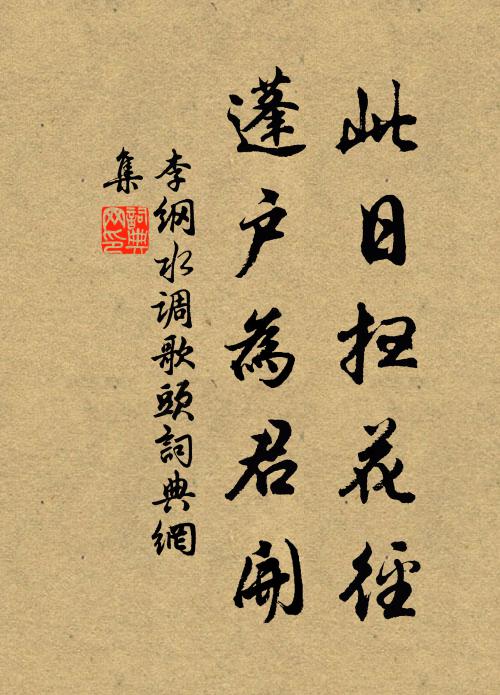 此日扫花径
蓬户為君開
李纲水调歌頭詞典網
集
詞典
网印